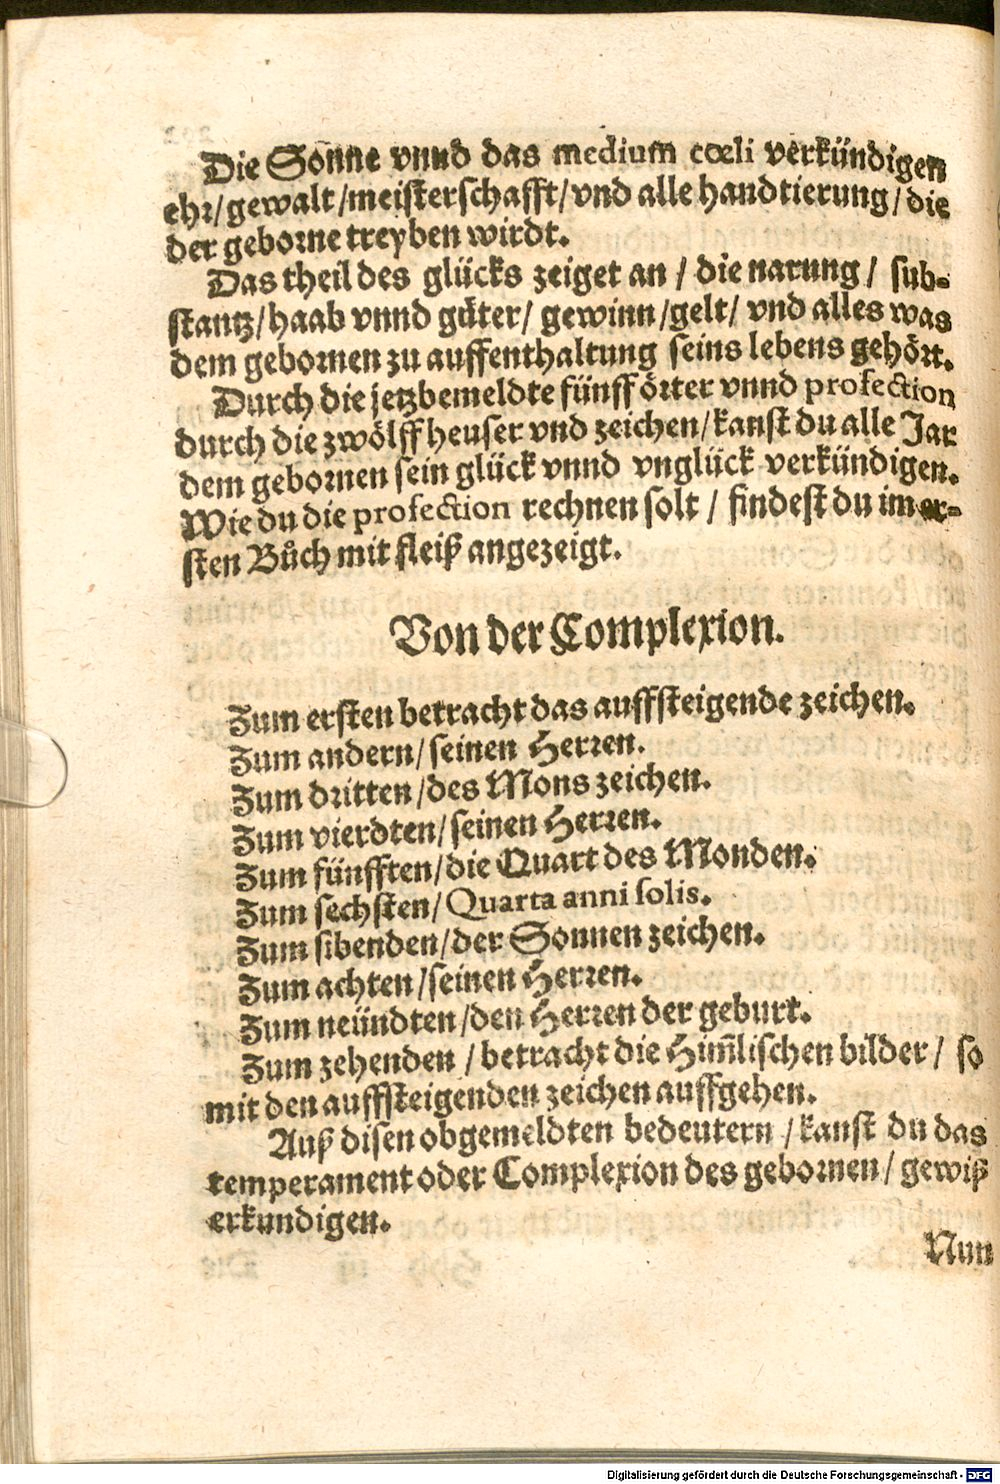 Die Sonne vnnd das medium cœli verkündigen
ehr/gewalt/meisterschafft/vnd alle handtierung/die
der geborne treyben wirdt.
Das theil des glücks zeiget an / die narung / sub-
stantz/haab vnnd güter/ gewinn/gelt/ vnd alles was
dem gebornen zu auffenthaltung seins lebens gehört.
Durch die jetzbemeldte fünff örter vnnd profection
durch die zwölff heuser vnd zeichen/kanst du alle Jar
dem gebornen sein glück vnnd vnglück verkündigen.
Wie du die profection rechnen solt / findest du im er-
sten Bůch mit fleiß angezeigt.
Von der Complexion.
Zum ersten betracht das auffsteigende zeichen.
Zum andern/seinen Herren.
Zum dritten/des Mons zeichen.
Zum vierdten/seinen Herren.
Zum fünfften/die Quart des Monden.
Zum sechsten/Quarta anni solis.
Zum sibenden/der Sonnen zeichen.
Zum achten/seinen Herren.
Zum neündten/den Herren der geburt.
Zum zehenden / betracht die Him̃lischen bilder/ so
mit den auffsteigenden zeichen auffgehen.
Auß disen obgemeldten bedeutern / kanst du das
temperament oder Complexion des gebornen/ gewiß
erkundigen.
Nun
Digitalisierung gefördert durch die Deutsche Forschungsgemeinschaft - DFG